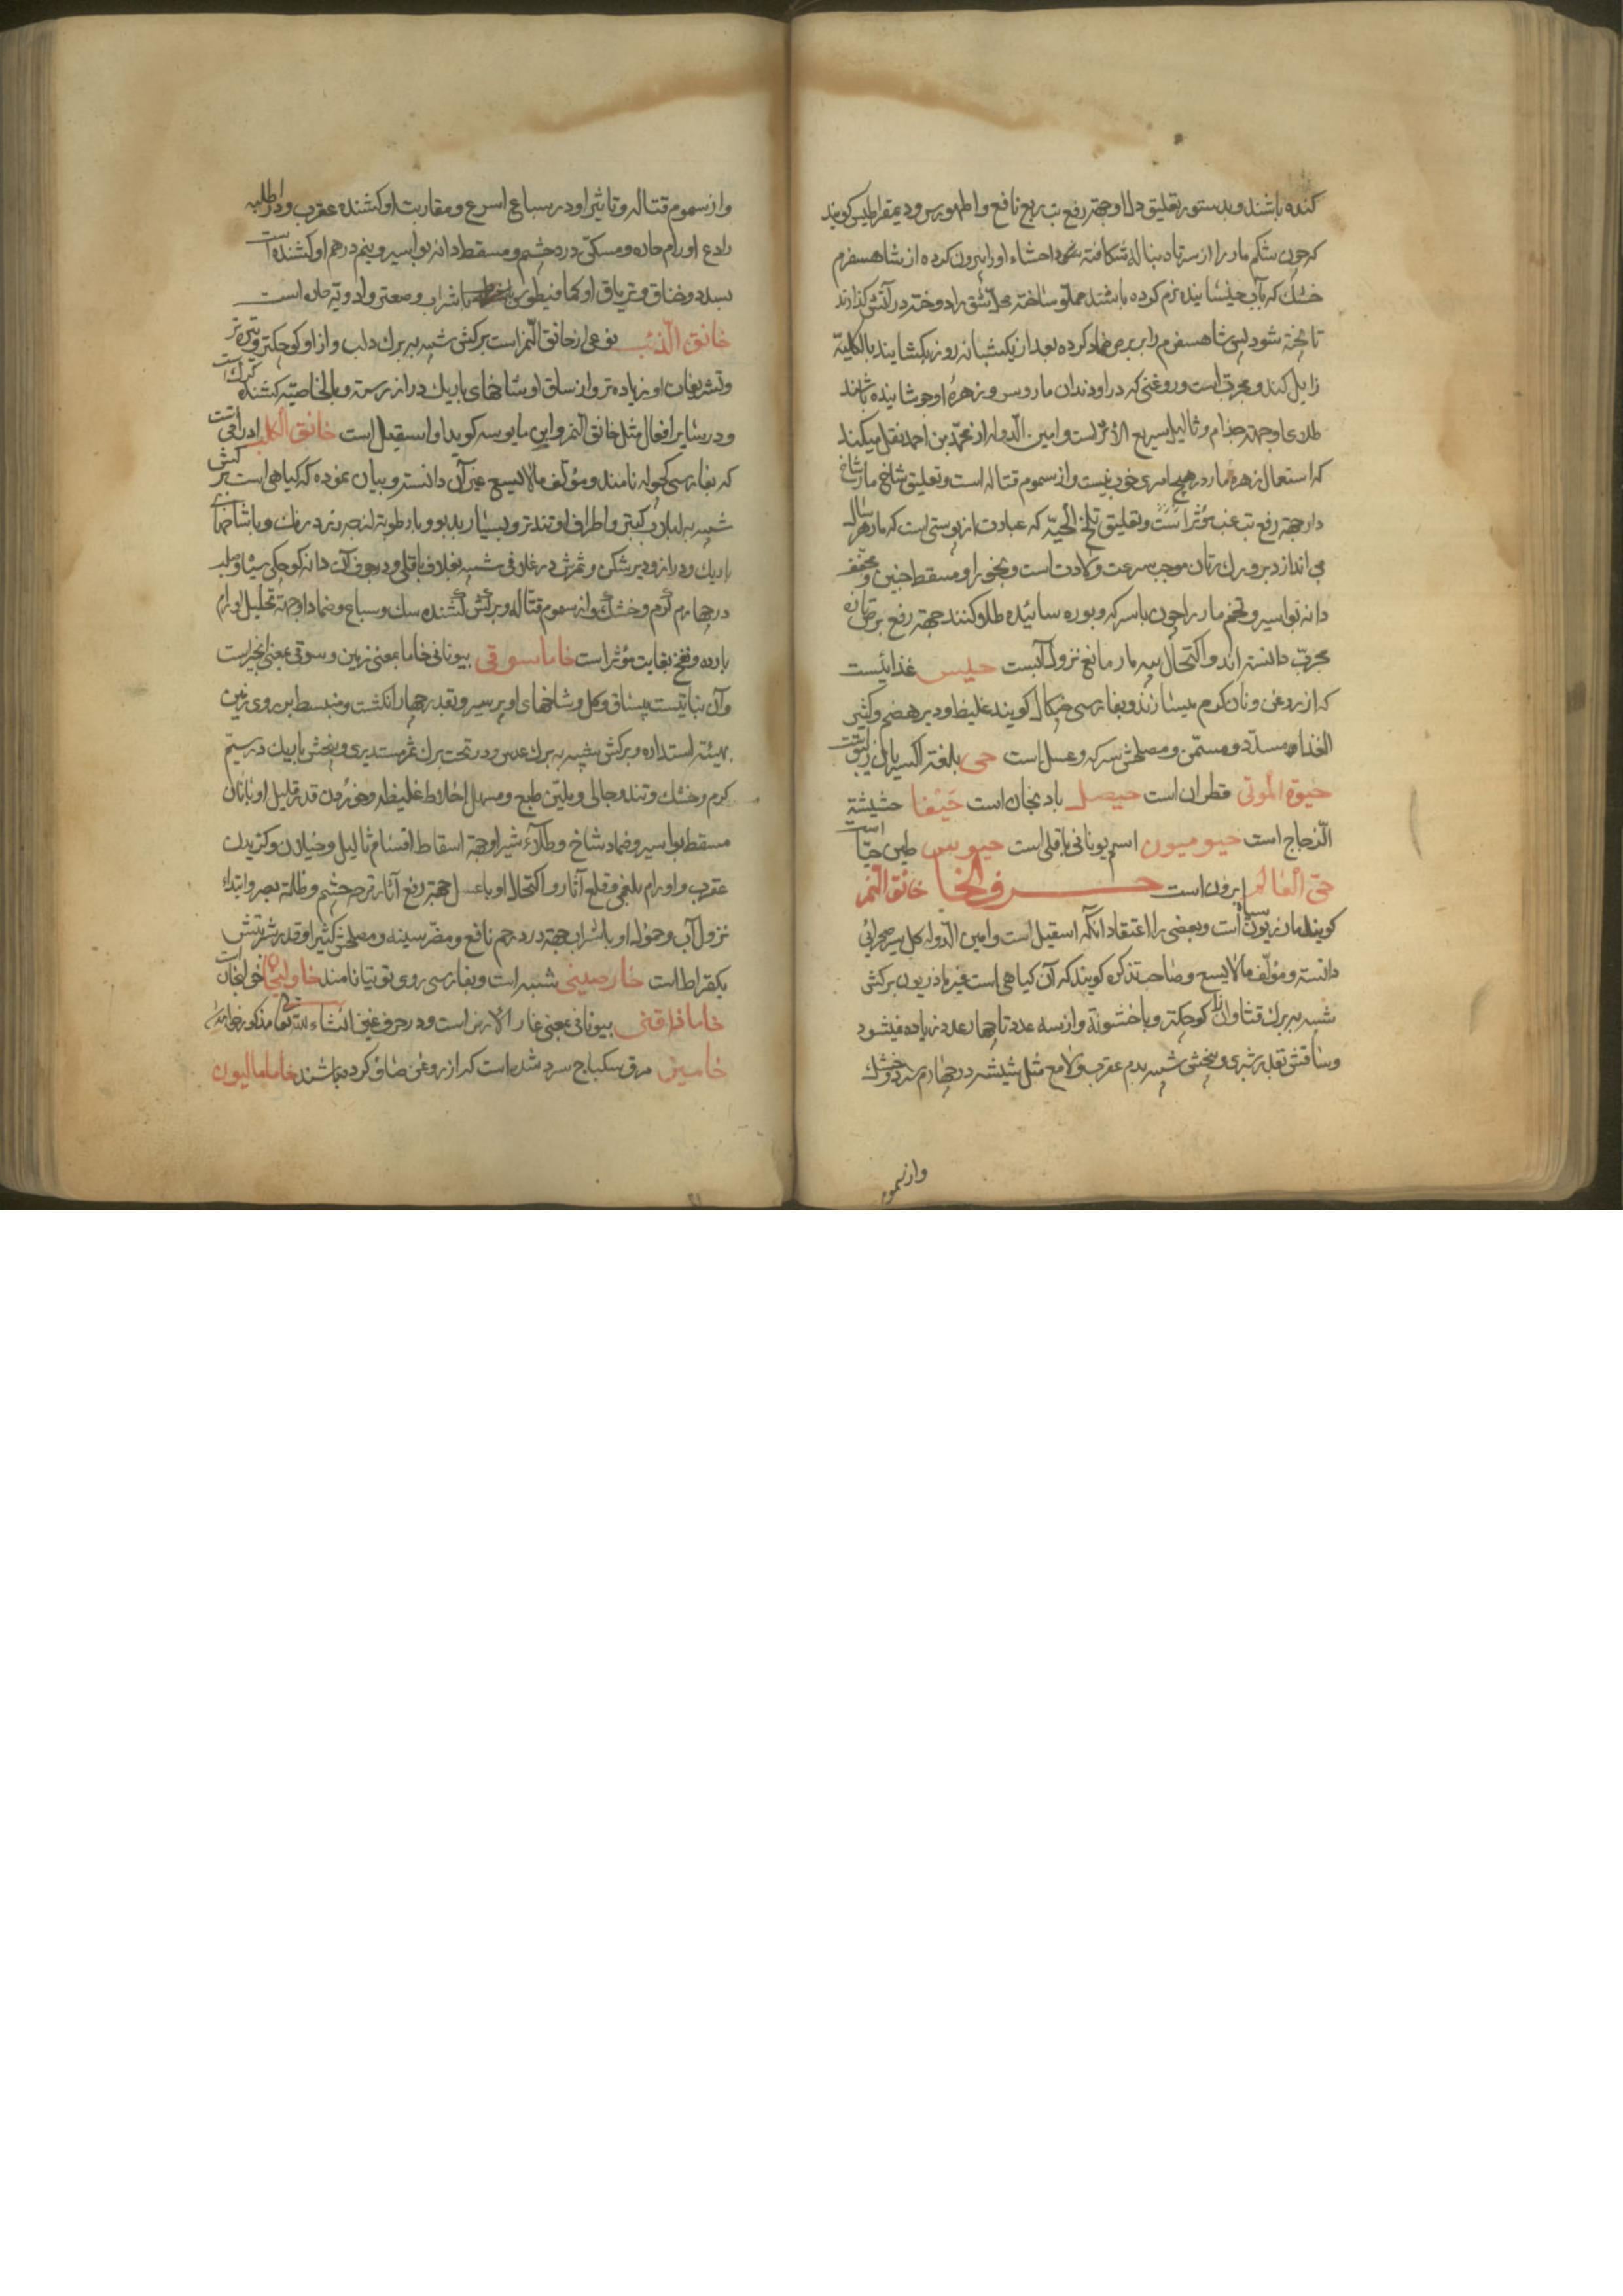 کنده باشند و بدستور تعلیق دل او جهة رفع تب ربع نافع و اطهورس و دیمقراطیس کویند
که چون شکم مار را از سر تا دنباله شکافته احشاء او را بیرون کرده از شاهسفرم
خشك که بآب خیسانیده نرم کرده باشند مملو ساخته محل شق را دوخته در آتش کذارند
تا پخته شود پس شاهسفرم را بر برص ضماد کرده بعد از یکشبانه روز بکشایند بالکلیة
زایل کند و مجرب است و روغنی که در او دندان مار و سر و زهره او جوشانیده باشند
طلای او جهة جذام و ثالیل سریع الاثر است و امین الدوله از محمد بن احمد نقل میکند
که استعمال زهره مار در هیچ امری خوب نیست و از سموم قتاله است و تعلیق شاخ مار شاخ
دار جهة رفع تب غب مؤثر است و تعلیق سلخ الحیة که عبارت از پوستی است که مار هر سال
می اندازد بر ورك زنان موجب سرعت ولادت است و بخور او مسقط جنین و مجفف
دانه بواسیر و تخم مار را چون با سرکه و بوره سائیده طلا کنند جهة رفع برص تازه
مجرب دانسته اند و اکتحال پیه مار مانع نزول آبست حلیس غذائیست
که از روغن و نان کرم میسازند و بفارسی چنکال کویند غلیظ و دیر هضم و کثیر
الغذا و مسدد و مسمن و مصلحش سرکه و عسل است حی بلغة اکسیریان زیبق است
حیوة الموتی قطران است حیصل بادنجان است حیفا حشیشة
الزجاج است حیومیون اسم یونانی باقلی است حیوبس طین حیا است
حی العالم ابرون است حرف الخا خانق النمر
کویند مازریون سیاه است و بعضی را اعتقاد آنکه اسقیل است و امین الدوله کل سیر صحرائی
دانسته و مؤلف مالایسع و صاحب تذکره کویند که آن کیاهی است غیر ماذریون برکش
شبیه ببرك قثا و از آن کوچکتر و با خشونة و از سه عدد تا چهار عدد زیاده نمیشود
و ساقش بقدر شبری و بیخش شبیه بدم عقرب و لامع مثل شیشه در چهارم سرد و خشك
و از سموم
و از سموم قتاله و تاثیر او در سباع اسرع و مقاربت او کشنده عقرب و در اطلیه
رادع اورام حاره و مسکن درد چشم و مسقط دانه بواسیر و نیم درهم او کشنده است
بسدد و خناق و تریاق او کمافیطوس با شراب و صعتر و ادویه حاره است
خانق الذئب نوعی از خانق النمر است برکش شبیه ببرك دلب و از او کوچکتر و تیره تر
و تشریفات او زیاده تر و از ساق او شاخهای باریك دراز رسته و بالخاصیه کشنده کرك است
و در سایر افعال مثل خانق النمر و ابن ماسویه کوید او اسقیل است خانق الکلب ادراقی است
که بفارسی کچوله نامند و مؤلف مالایسع غیر آن دانسته و بیان نموده که کیاهی است برکش
شبیه به لبلاب کبیر و اطراف او تندتر و بسیار بدبو و با رطوبة لزجه زرد رنك و با شاخهای
باریك و دراز و دیر شکن و ثمرش در غلافی شبیه بغلاف باقلی و در جوف آن دانه کوچکی سیاه و صلب
در چهارم کرم و خشك و از سموم قتاله و برکش کشنده سك و سباع و ضماد او جهة تحلیل اورام
بارده و نفخ بغایت مؤثر است خاماسوقی بیونانی خاما بمعنی زمین و سوقی بمعنی انجیر است
و آن نباتیست بیساق و کل و شاخهای او پر شیر و بقدر چهار انکشت و منبسط بر روی زمین
بهیئة استداره و برکش شبیه به برك عدس و در تحت برك ثمر مستدیری و بیخش باریك در سیم
کرم و خشك و تند و جالی و ملین طبع و مسهل اخلاط غلیظه و خوردن قدر قلیل او با نان
مسقط بواسیر و ضماد شاخ و طلاء شیر او جهة اسقاط اقسام ثالیل و خیلان و کزیدن
عقرب و اورام بلغمی و قلع آثار و اکتحال او با عسل جهة رفع آثار قرحه چشم و ظلمة بصر و ابتداء
نزول آب و حمول او با شراب جهة درد رحم نافع و مضر سینه و مصلحش کثیرا و قدر شربتش
یکقیراط است خارصینی شبیه است و بفارسی روی توتیا نامند خاولیجان خولنجان است
خامافاقنی بیونانی بمعنی غار الارض است و در حرف غین انشاء الله تعالی مذکور خواهد شد
خامیز مرق سکباج سرد شده است که از روغن صاف کرده باشند خامامالیون